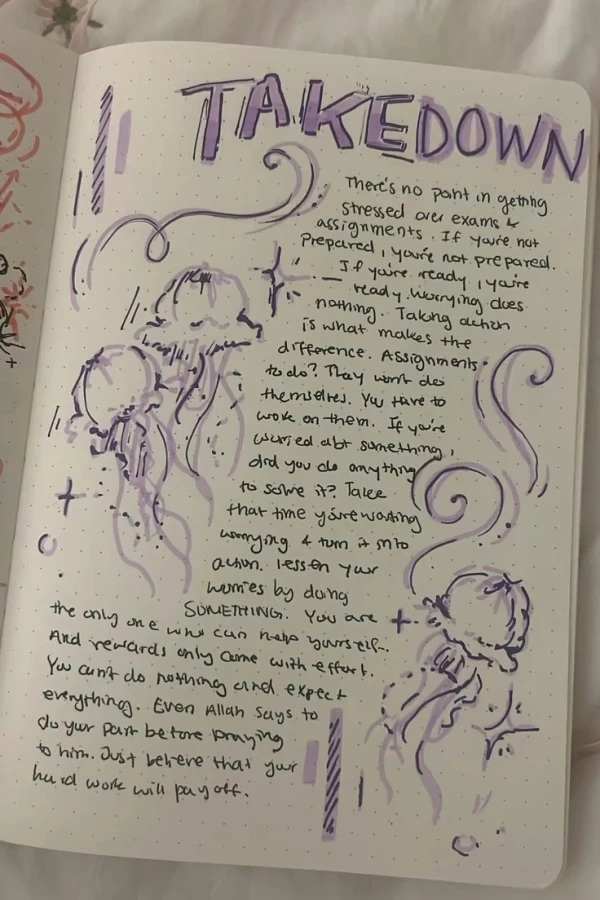 TAKEDOWN
There's no point in getting
stressed over exams &
assignments. If you're not
prepared, you're not prepared.
If you're ready, you're
ready. Worrying does
nothing. Taking action
is what makes the
difference. Assignments
to do? They won't do
themselves. You have to
work on them. If you're
worried abt something,
did you do anything
to solve it? Take
that time you're wasting
worrying & turn it into
action. lessen your
worries by doing
SOMETHING. You are
the only one who can help yourself.
And rewards only come with effort.
You can't do nothing and expect
everything. Even Allah says to
do your part before praying
to him. Just believe that your
hard work will pay off.